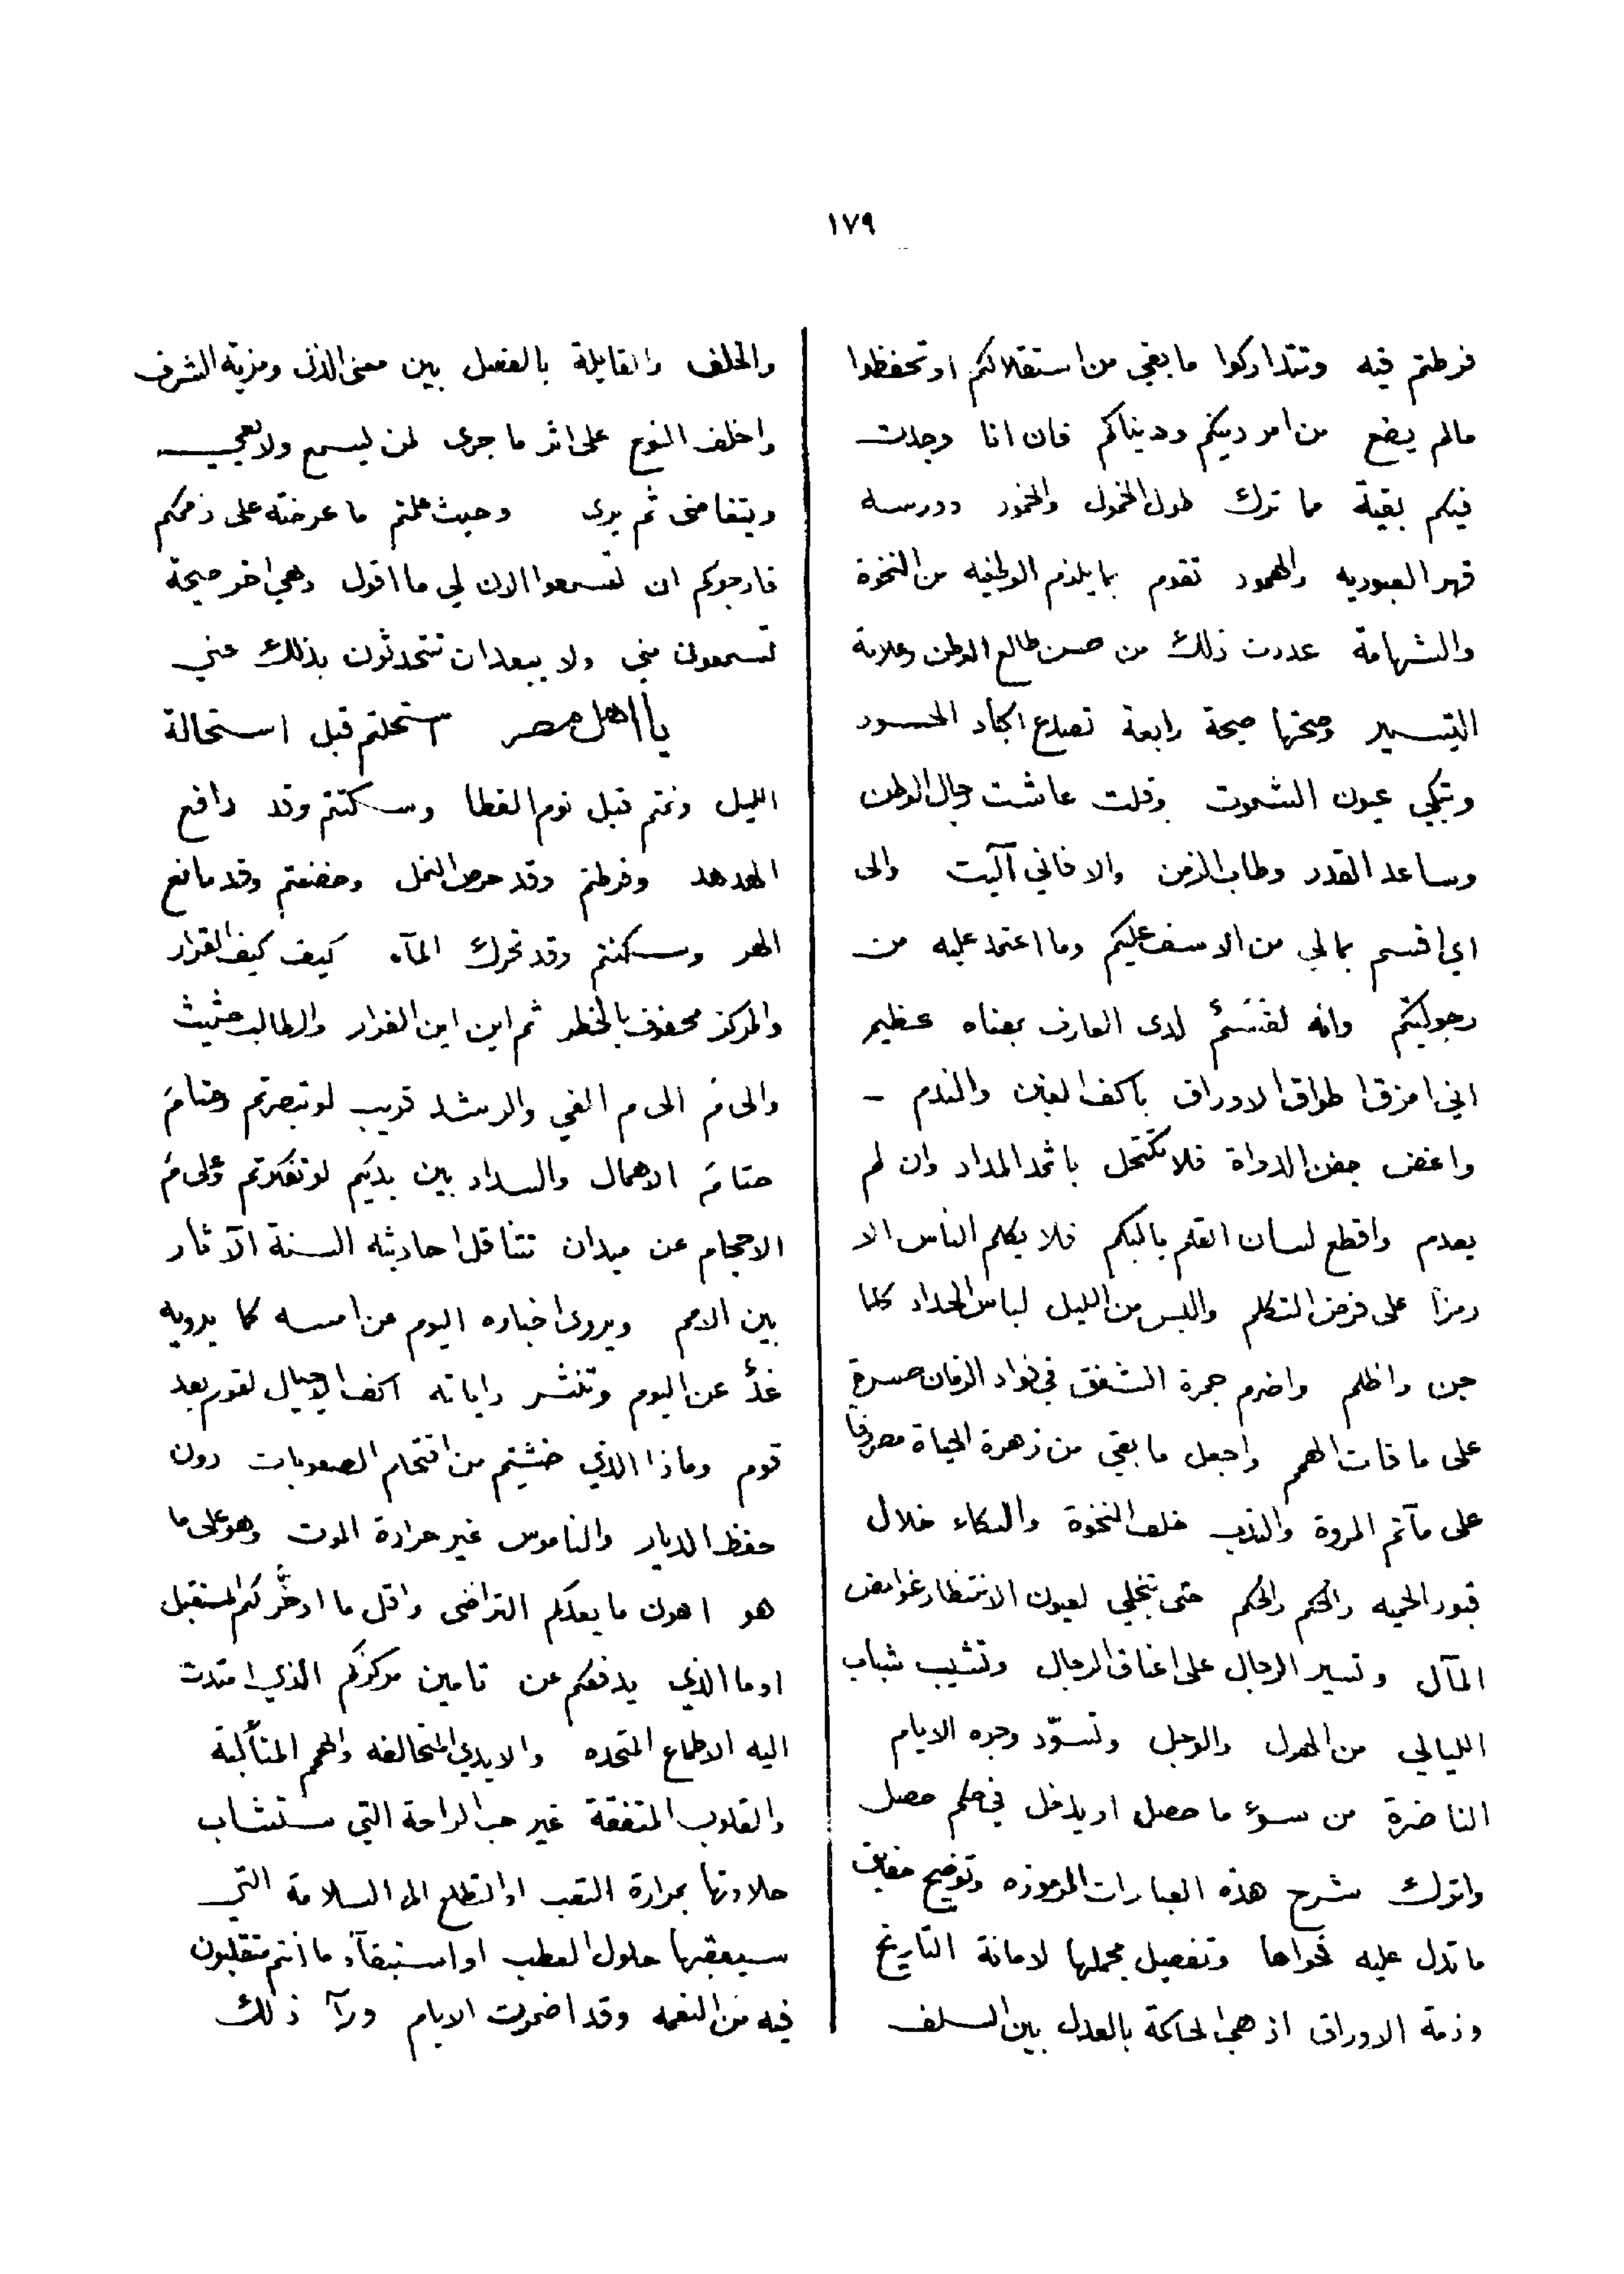 ١٧٩
فرطتم فيه وتتداركوا ما بقي من استقلالكم او تحفظوا
مالم يضع من امر دينكم ودنياكم فان انا وجدت
فيكم بقية مما ترك طول الخمول والخمود ودرسه
قهر العبوديه والهمود تقوم بما يلزم الوطنيه من النخوة
والشهامة عددت ذلك من حسن طالع الوطن وعلامة
التيسير وصحتها صيحة رابعة تصدع اكباد الحسود
وتبكي عيون الشموت وقلت عاشت رجال الوطن
وساعد القدر وطاب الزمن والا فاني آليت والى
اي اقسم بمالي من الاسف عليكم وما اعتمد عليه من
رجوليتكم وانه لقَسَمٌ لدى العارف بمعناه عظيم
اني امزق اطواق الاوراق باكف الغبن والندم –
واغض جفن الدواة فلا تكتحل باثمد المداد وان لم
يعدم واقطع لسان القلم بالبكم فلا يكلم الناس الا
رمزا على فرض التكلم والبس من الليل لباس الحداد كلما
جن واظلم واضرم جمرة الشفق في فواد الزمان حسرة
على ما فات الهمم واجعل ما بقي من زهرة الحياة مصروفا
على مآتم المروة والندب خلف النخوة والبكاء خلال
قبور الحميه والحكم والحكم حتى تنجلي لعيون الانتظار غوامض
المآل وتسير الرجال على اعناق الرجال وتشيب شباب
الليالي من الهول والوجل وتسوّد وجوه الايام
الناضرة من سوء ما حصل او يدخل في حكم حصل
واترك شرح هذه العبارات المرموزه وتوضيح حقايق
ما تدل عليه فحواها وتفصيل مجملها لامانة التاريخ
وذمة الاوراق اذ هي الحاكمة بالعدل بين السلف
والخلف والقايلة بالفصل بين معنى الذل ومزية الشرف
واخلف النوح على اثر ما جرى لمن ليسمع ولا يعي
ويتغاضى ثم يرى وحيث علمتم ما عرضته على ذممكم
فارجوكم ان تسمعوا الان لي ما اقول وهي اخر صيحة
تسمعون مني ولا يبعد ان تتحدثون بذلك عني
يا اهل مصر استحلتم قبل استحالة
الليل ونمتم قبل نوم القطا وسكتتم وقد دافع
الهدهد وفرطتم وقد حرص النمل وخضعتم وقد مانع
الهر وسكنتم وقد تحرك المآء كيف كيف القرار
والمركز محفوف بالخطر ثم اين اين الفرار والطالب حثيث
والى مَ الى م الغي والرشد قريب لو تبصرتم وحتامَ
حتامَ الاهمال والسداد بين يديكم لو تفكرتم وإلى مَ
الاحجام عن ميدان تتناقل احاديثه السنة الآثار
بين الامم ويروى اخباره اليوم عن امسه كما يرويه
غدٌ عن اليوم وتنشر راياته اكف الاجيال لقوم بعد
قوم وماذا الذي خشيتم من اقتحام الصعوبات دون
حفظ الديار والناموس غير حرارة الموت وهو على ما
هو اهون ما يعدكم التراضى واقل ما ادخَّر لكم المستقبل
او ما الذي يدفعكم عن تامين مركزكم الذي امتدت
اليه الاطماع المتحده والايدي المتحالفه والهمم المتألبة
والقلوب المتفقة غير حب الراحة التي ستشاب
حلاوتها بمرارة التعب او التطلع الى السلامة التي
سيعقبها حلول العطب او استبقآء ما انتم متقلبون
فيه من النعمه وقد اضمرت الايام ورآ ذلك